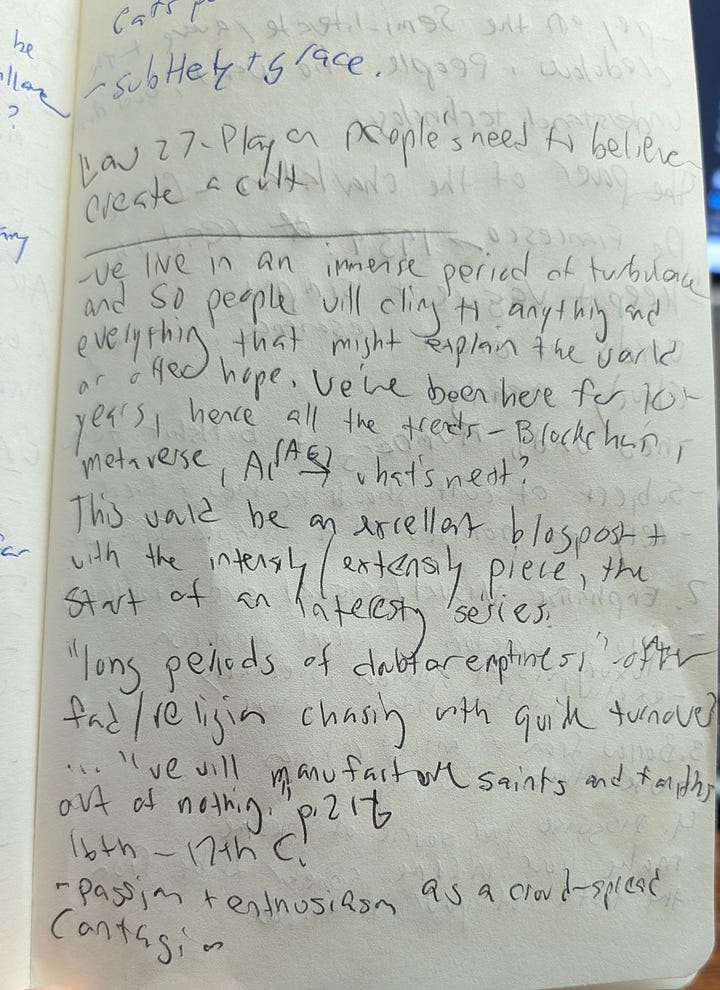 be
?
- subtlety + grace.
Law 27 - Play on people's need to believe
create a cult
- we live in an immense period of turbulance
and so people will cling to anything and
everything that might explain the world
or offer hope. We've been here for 10+
years, hence all the trends - Blockchain,
metaverse, AI, what's next?
This would be an excellent blogpost +
with the intensity/extensity piece, the
start of an interesty series.
"long periods of doubt or emptiness" - often
fad/religion chasing with quick turnover
... "we will manufacture saints and faiths
out of nothing." p. 216
16th - 17th C.
- passion + enthusiasm as a crowd-spread
Contagion